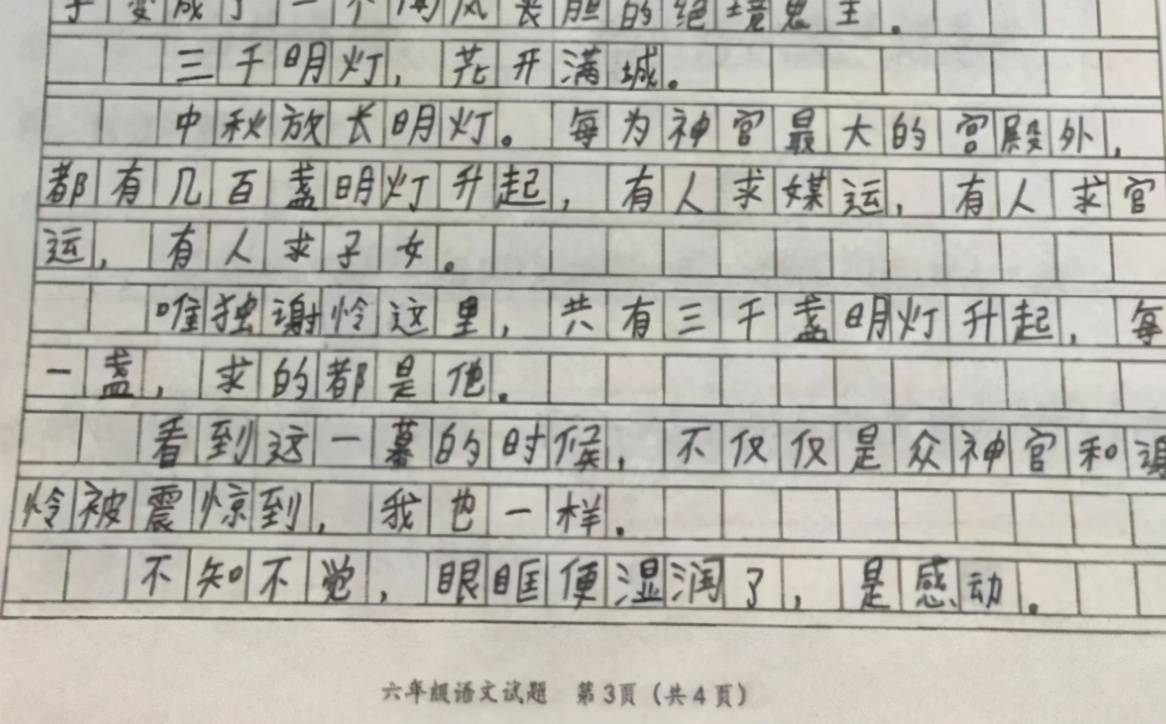 子变成了一个闻风丧胆的绝境鬼王。
三千明灯，花开满城。
中秋放长明灯。每为神官最大的宫殿外，
都有几百盏明灯升起，有人求媒运，有人求官
运，有人求子女。
唯独谢怜这里，共有三千盏明灯升起，每
一盏，求的都是他。
看到这一幕的时候，不仅仅是众神官和谢
怜被震惊到，我也一样。
不知不觉，眼眶便湿润了，是感动。
六年级语文试题 第3页（共4页）